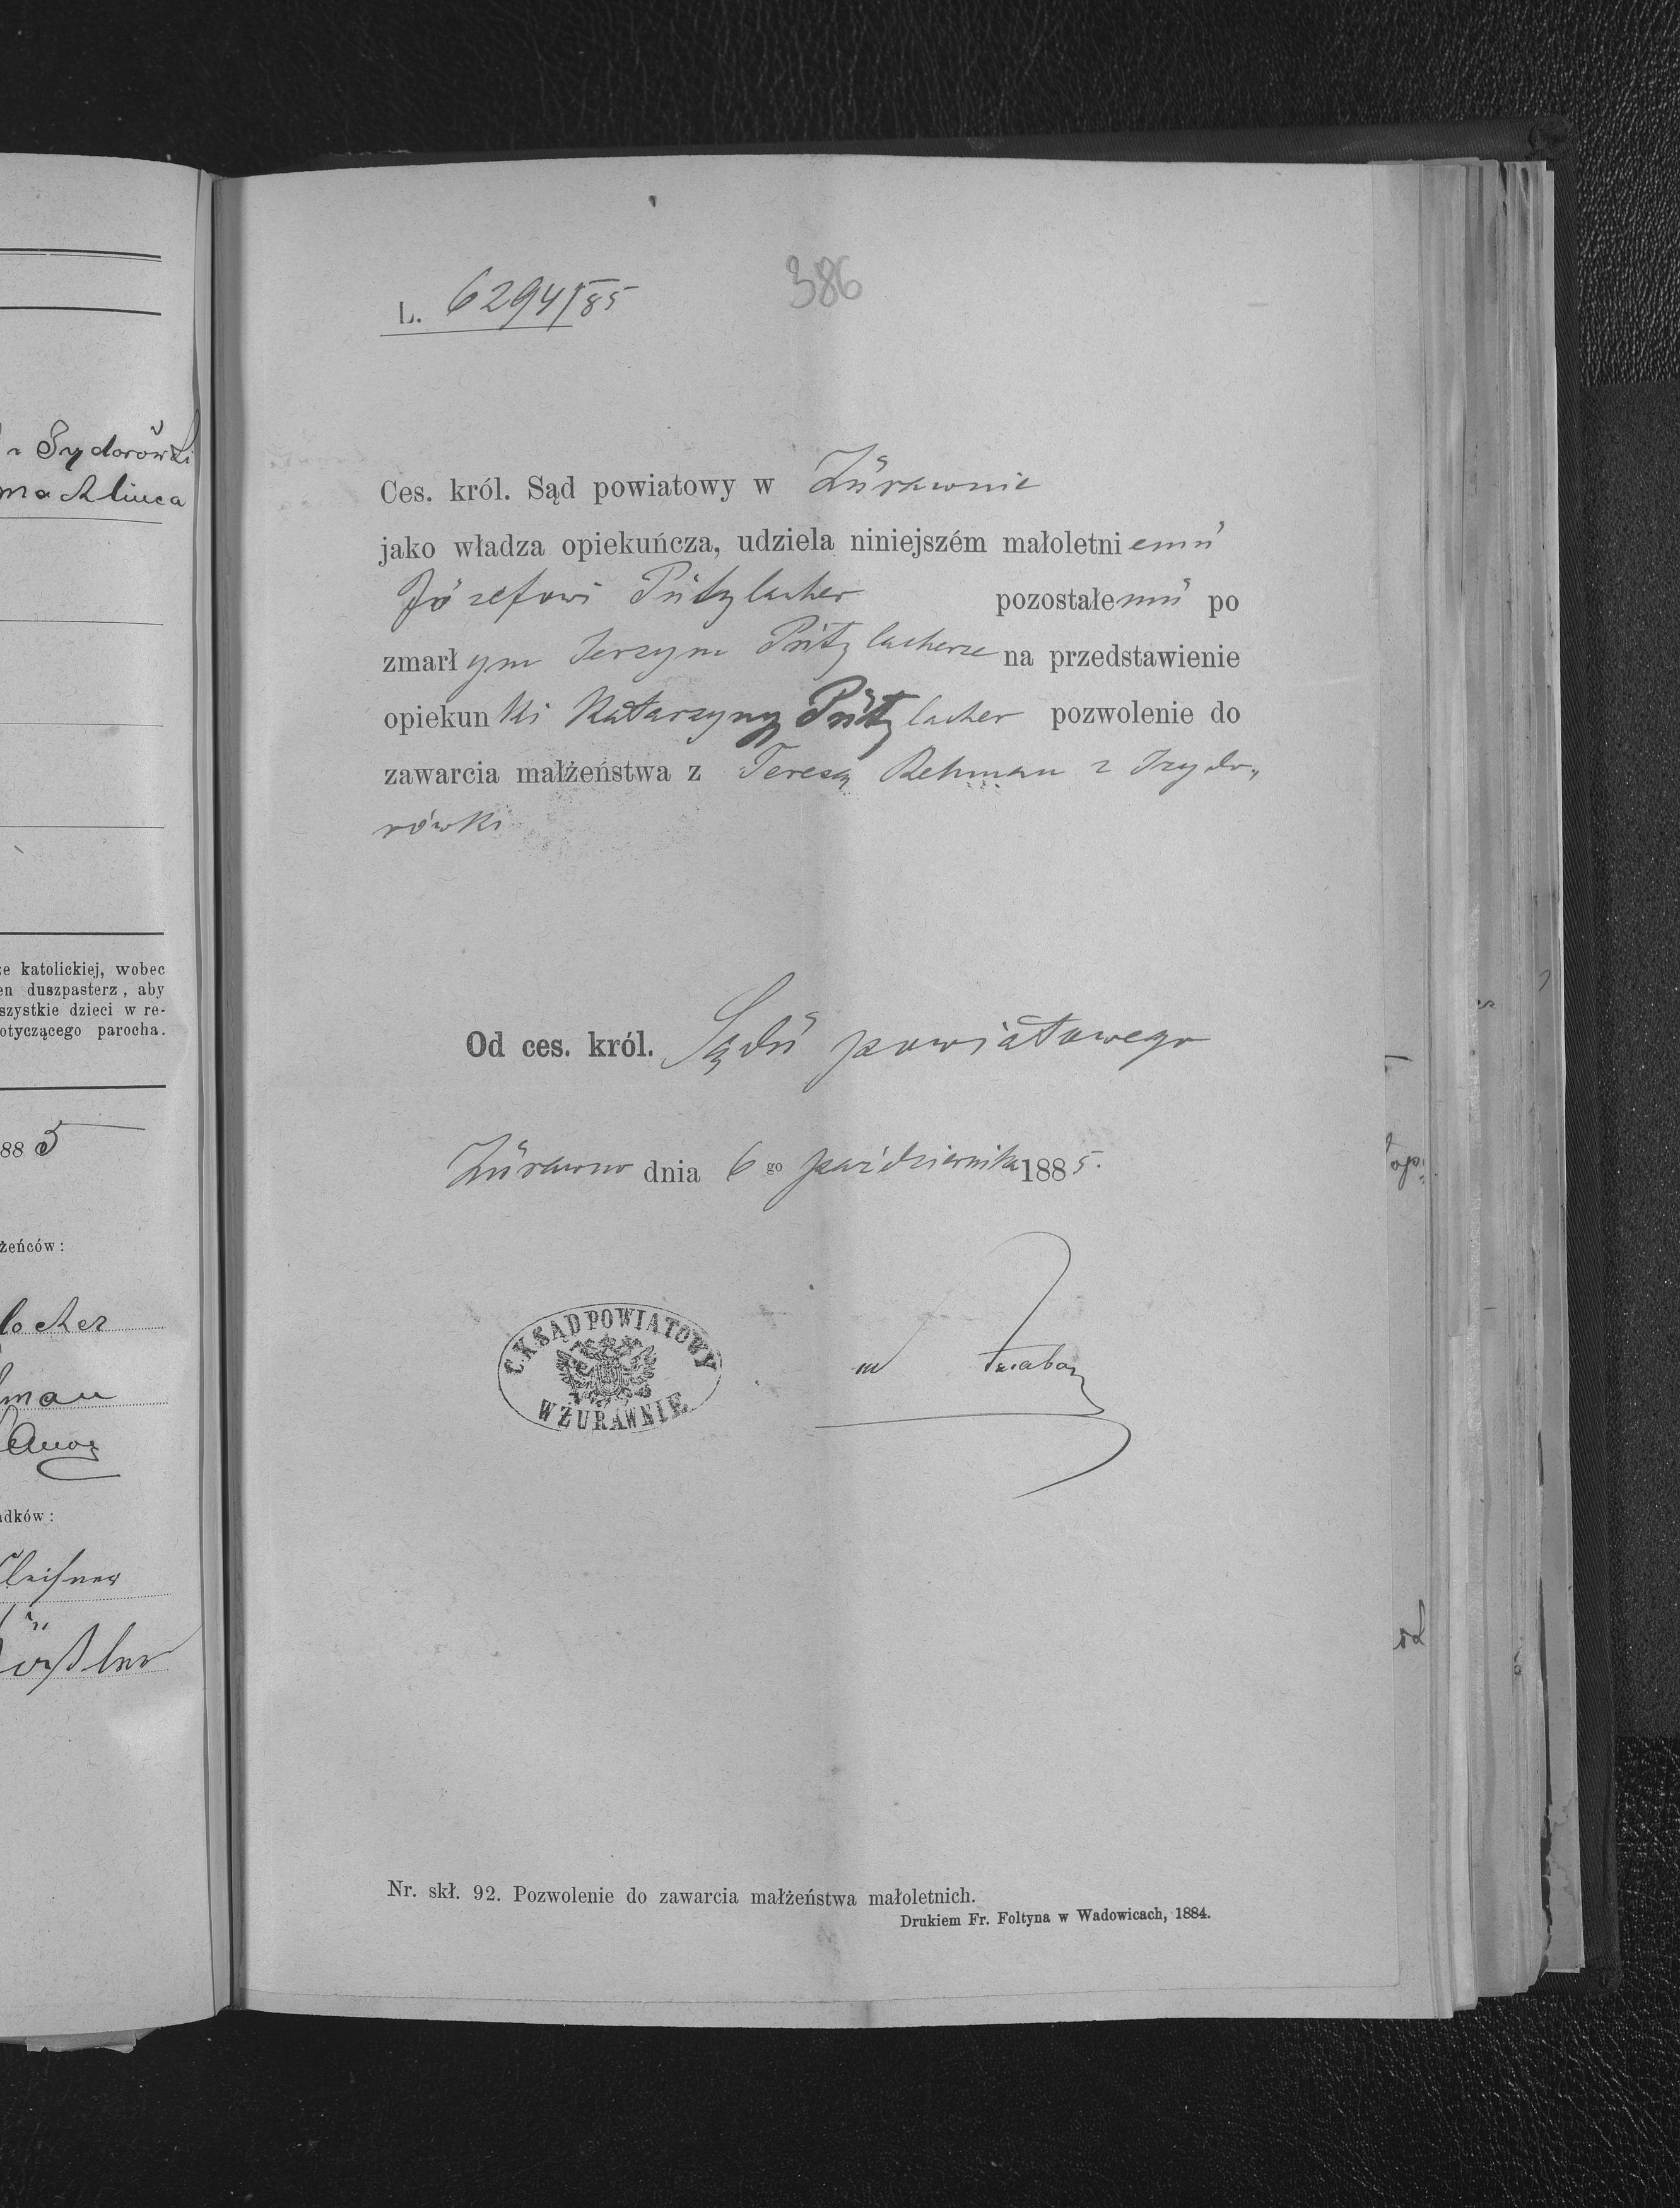 z Sydorówki
386
L. 6294/85
Ces. król. Sąd powiatowy w Żurawnie
jako władza opiekuńcza, udziela niniejszém małoletniemu
Józefowi Putzlacher pozostałemu po
zmarłym Jerzym Putzlacherze na przedstawienie
opiekunki Katarzyny Putzlacher pozwolenie do
zawarcia małżeństwa z Teresą Rehman z Izydo„
rówki
Od ces. król. Sądu powiatowego
Żurawno dnia 6go października 1885.
C. K. SĄD POWIATOWY
W ŻURAWNIE
Nr. skł. 92. Pozwolenie do zawarcia małżeństwa małoletnich.
Drukiem Fr. Foltyna w Wadowicach, 1884.
ze katolickiej, wobec
en duszpasterz, aby
szystkie dzieci w re-
otyczącego parocha.
885
żeńców:
lacher
man
adków: